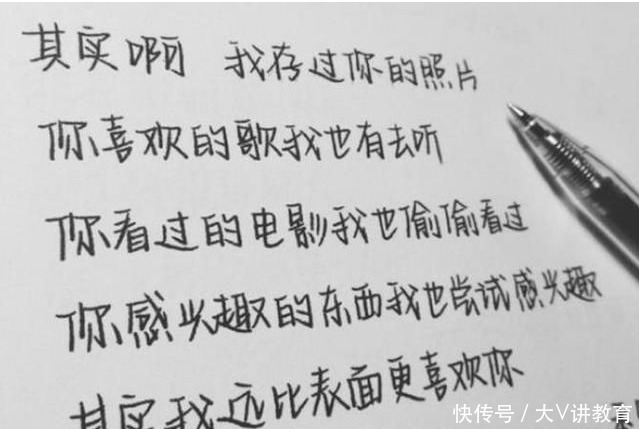 其实啊 我存过你的照片
你喜欢的歌我也有去听
你看过的电影我也偷偷看过
你感兴趣的东西我也尝试感兴趣
其实我远比表面更喜欢你
快传号/大V讲教育